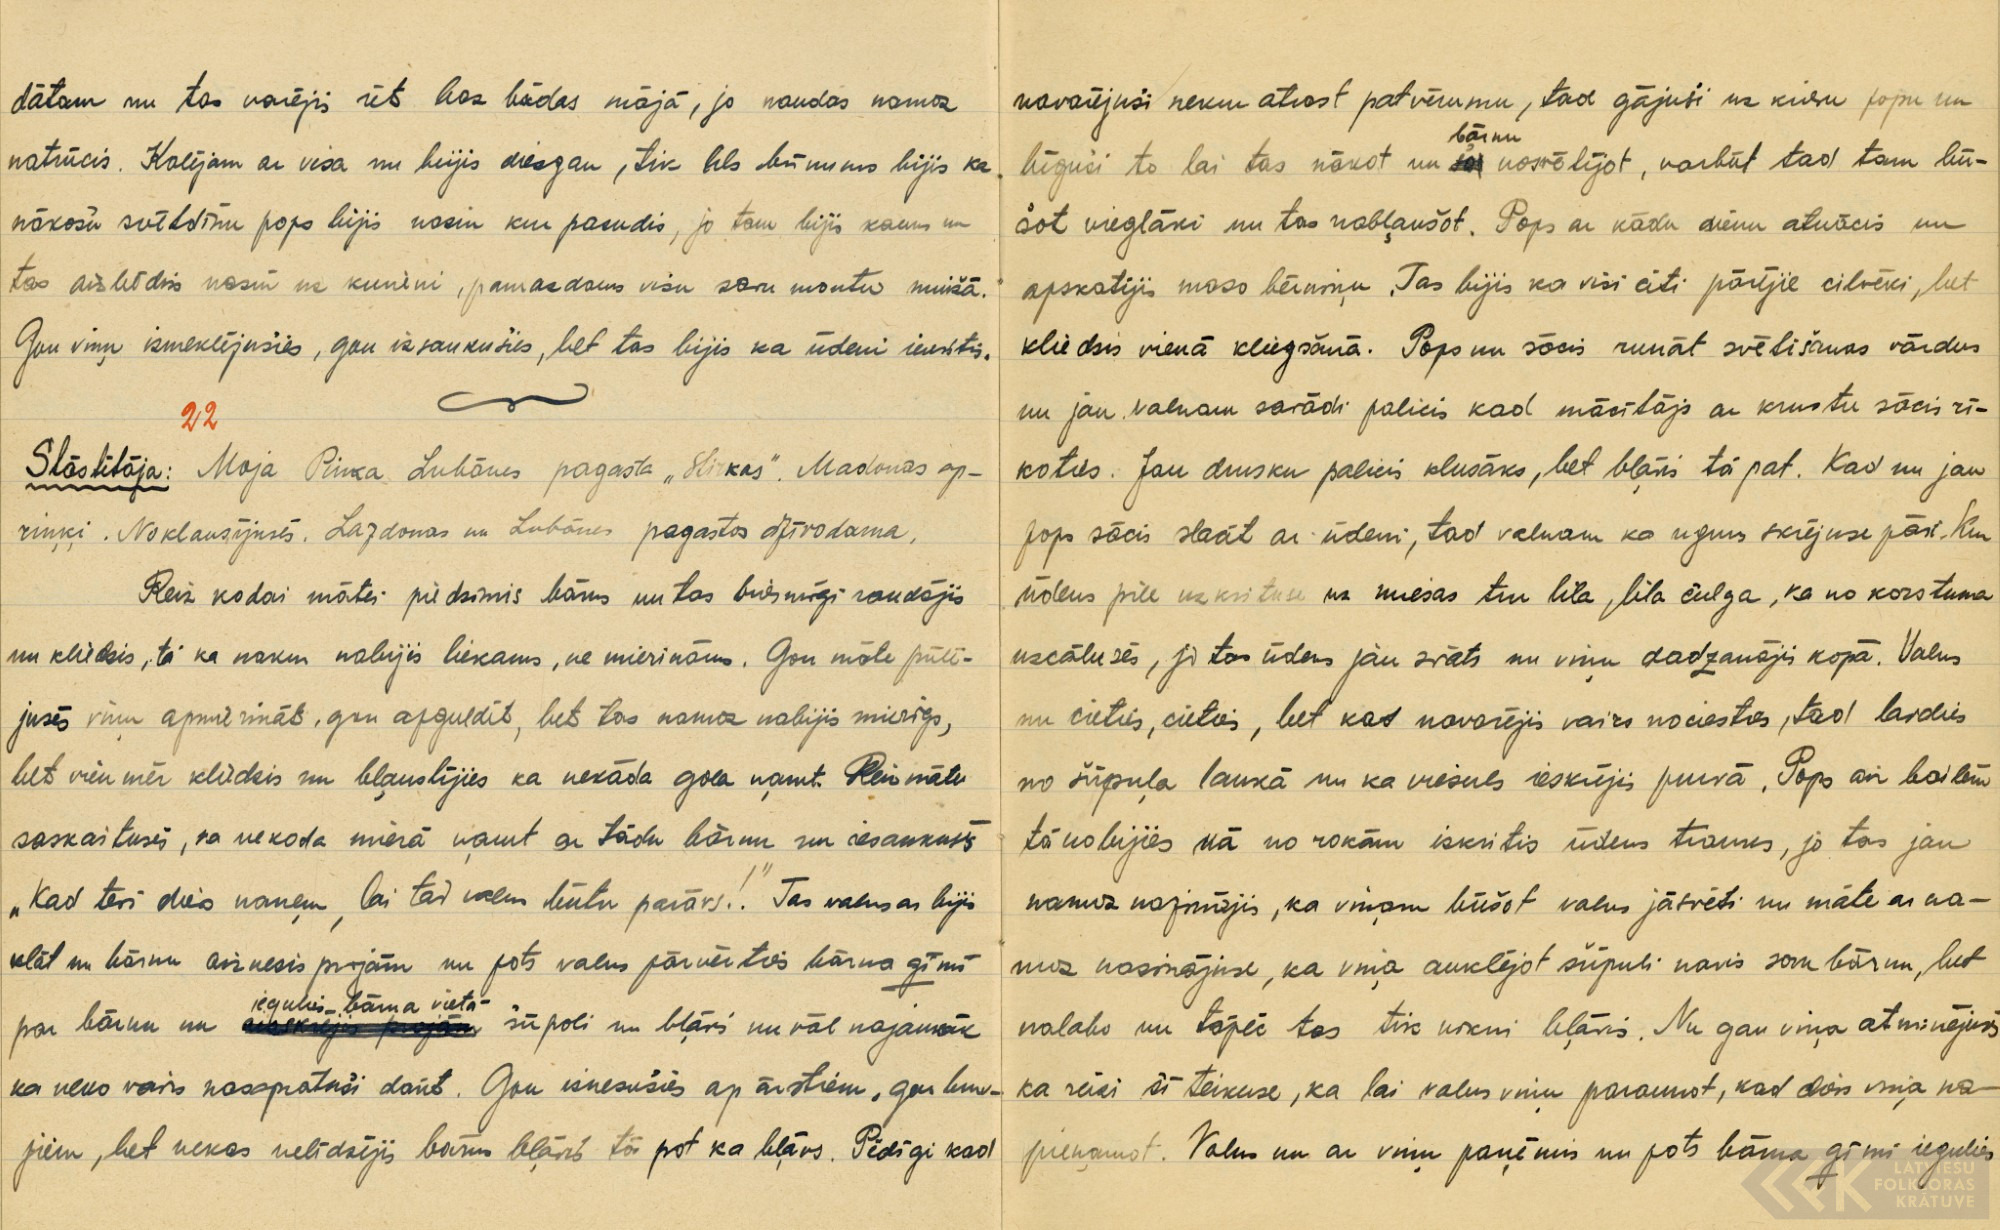 dātam nu tas varējis iēt bez bēdas mājā, jo naudas namaz
natrūcis. Kalējam ar visa nu bijis diezgan, tik līls bēnums bijis ka
nākošu svētdīnu pops bijis nazin kur pazudis, jo tam bijis kauns un
tas aizbēdzis nazin uz kurieni, pamazdams visu savu mantu muižā.
Gan viņu izmeklējušies, gan izsaukušies, bet tas bijis ka ūdenī iekritis.
22
Stāstītāja: Maja Pinka Lubānes pagasta „Slirkas". Madonas ap-
riņķī. Noklausījusēs. Lazdonas un Lubānes pagastos dzīvodama.
Reiz kādai mātei piedzimis bārns un tas briesmīgi raudājis
un kliedzis, tā ka nakur nabijis liekams, ne mierināms. Gan māte pūlē-
jusēs viņu apmierināt, gan apguldīt, bet tas namaz nabijis mierīgs,
bet vienmēr kliedzis un bļaustījies ka nekāda gala ņamt. Reiz māte
saskaitusēs, ka nekāda mierā ņamt ar tādu bārnu un iesaukusēs
„Kad tevi dievs naņem, lai tad valns būtu parāvs!." Tas valns ar bijis
klāt un bārnu aiznesis projām un pats valns pārvērties bārna ģīmī
iegulies bārna vietā
par bārnu un šūpolī un bļāvis un vāl najaukāk
ka neko vairs nasapratuši darīt. Gan iznesušies ap ārstiem, gan bur-
jiem, bet nekas nelīdzējis bārns bļāvis tā pat ka bļāvs. Pēdīgi kad
navarējuši nekur atrast patvērumu, tad gājuši uz kursu popu un
bārnu
lūguši to lai tas nākot un nosvētījot, varbūt tad tam bū-
šot vieglāki un tas nabļaušot. Pops ar kādu dienu atnācis un
apskatījis mazo bērniņu. Tas bijis ka visi citi pārējie cilvēki, bet
kliedzis vienā kliegšanā. Pops nu sācis runāt svētīšanas vārdus
nu jau valnam savādi palicis kad mācītājs ar krustu sācis rī-
koties. Jau drusku palicis klusāks, bet bļāvis tā pat. Kad nu jau
pops sācis slaāt ar ūdeni, tad valnam ka uguns skrējuse pāri. Kur
ūdens pile uzkrituse uz miesas tur lila, lila čulga, ka no karstuma
uzcāluses, jo tas ūdens jau svāts nu viņu dadzanājis kopā. Valns
nu cieties, cieties, bet kad navarējis vairs nociesties, tad laidies
no šūpuļa laukā un ka viesuls ieskrējis purvā. Pops aiz bailēm
tā nobijies kā no rokām izkritis ūdens trauks, jo tas jau
namaz nazinājis, ka viņam būšot valns jāsvēti un māte ar na-
maz nazinājuse, ka viņa auklējot šūpulī navis savu bārnu, bet
nalabo un tāpēc tas tik nikni bļāvis. Nu gan viņa atminējusēs
ka reizi šī teikuse, ka lai valns viņu paraunot, kad dievs viņa na-
pieņamot. Valns nu ar viņu paņēmis un pats bārna ģīmī iegulies
LATVIEŠU
FOLKLORAS
KRĀTUVE